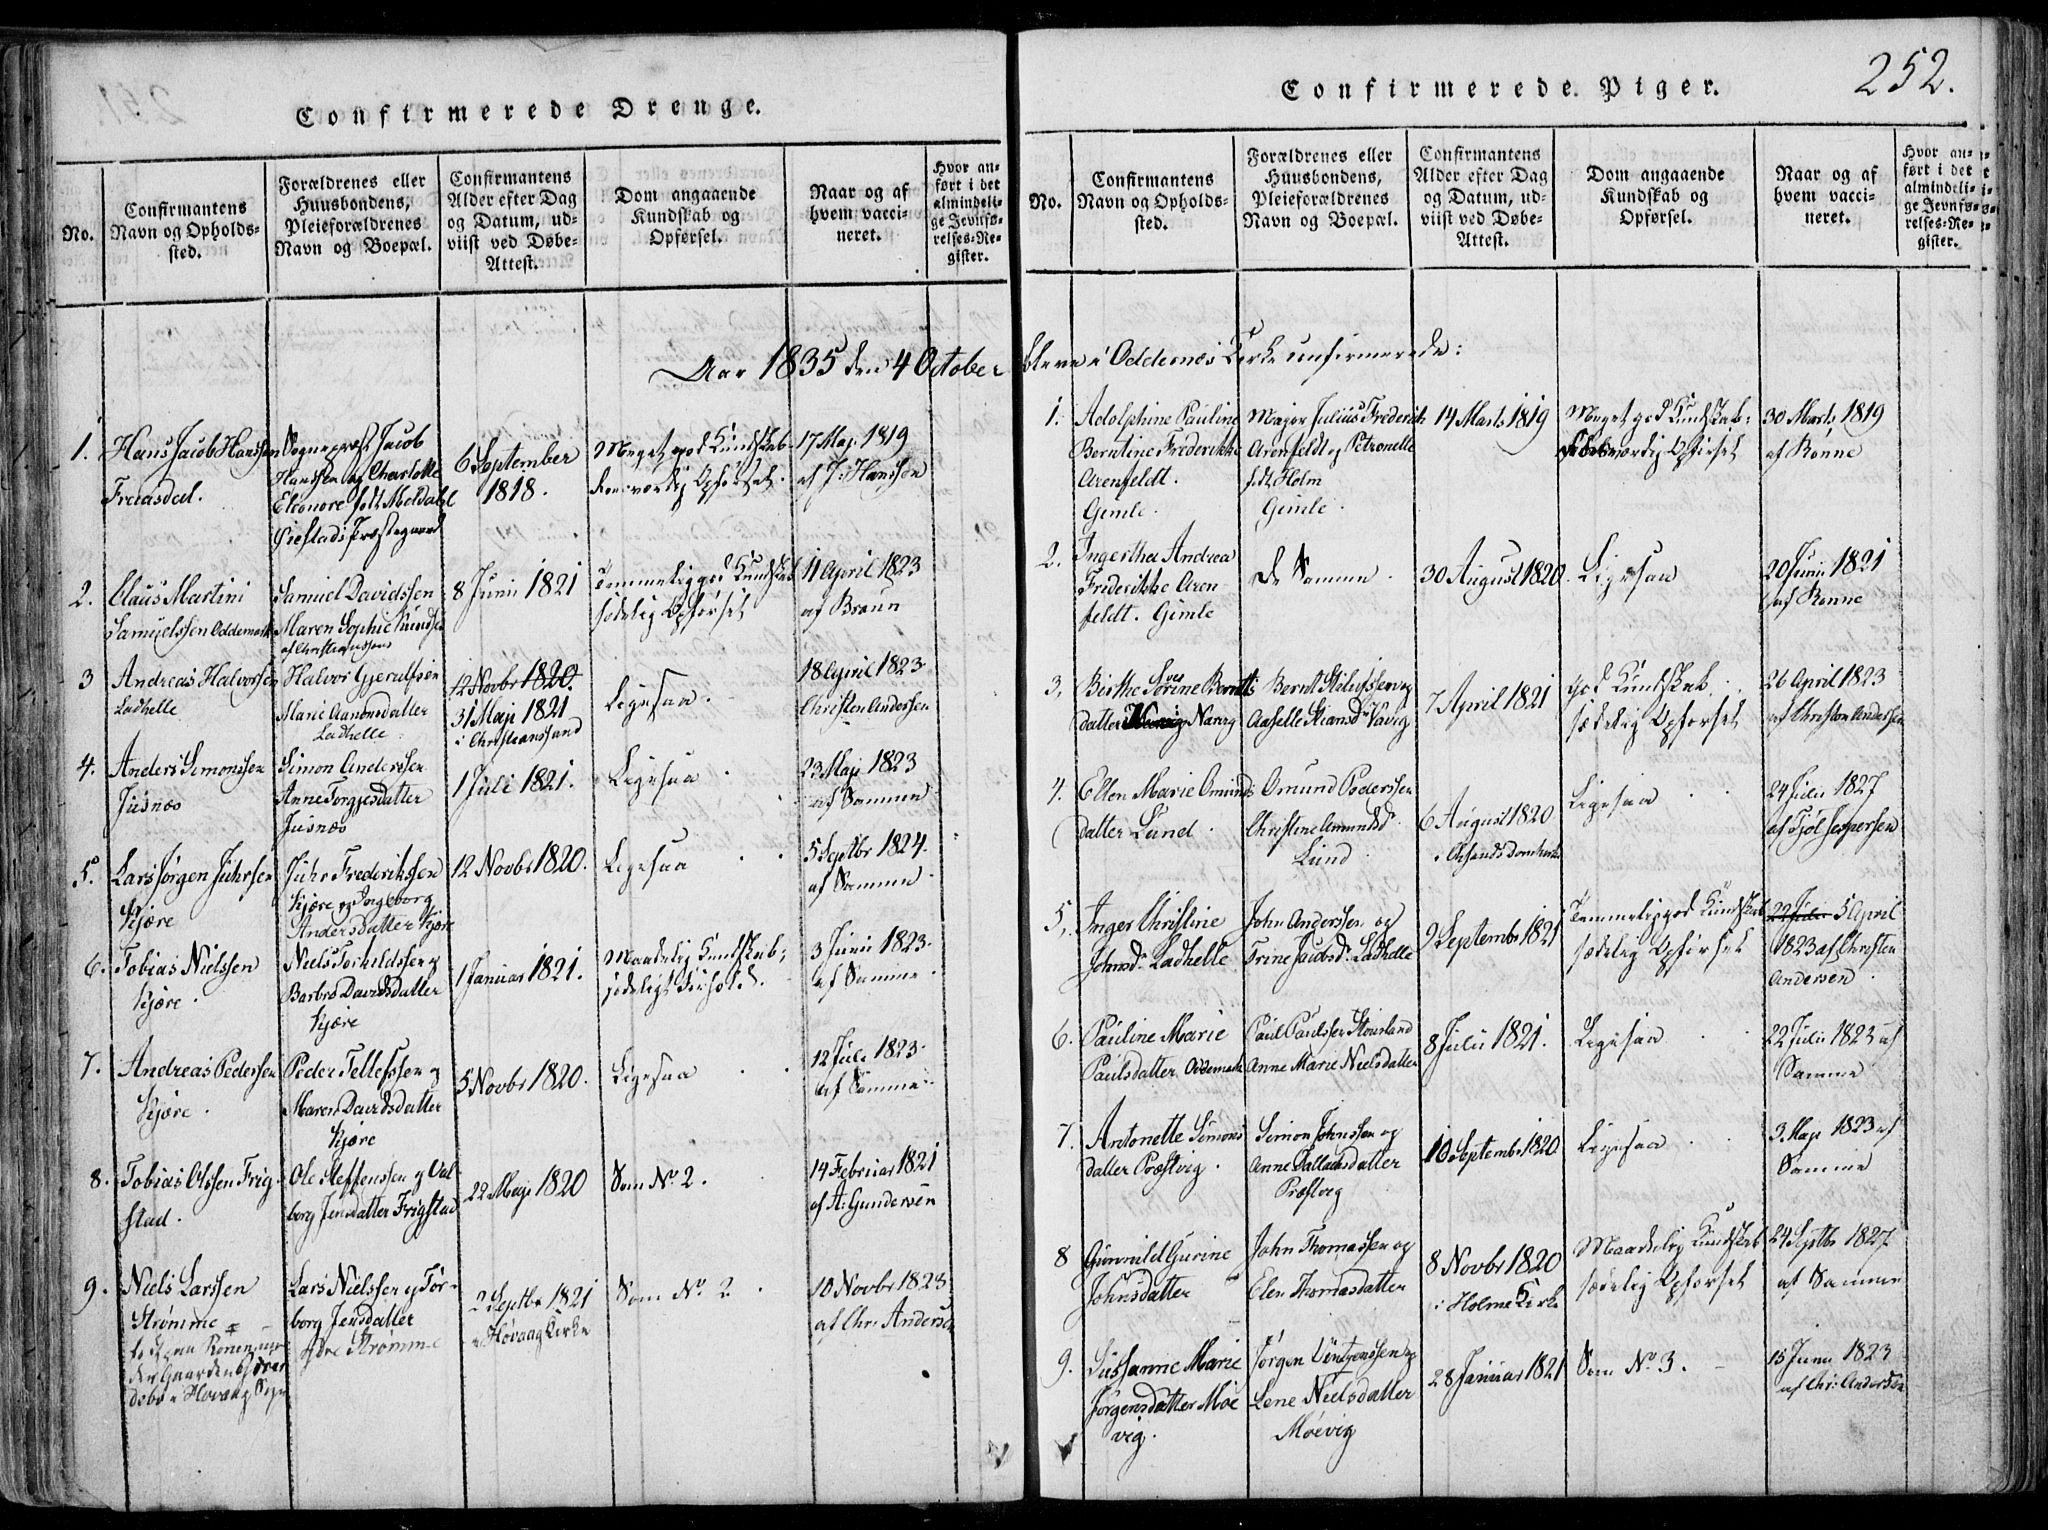 252.
Confirmerede Drenge.
No.
Confirmantens
Navn og Opholds-
sted.
Forældrenes eller
Huusbondens,
Pleieforældrenes
Navn og Boepæl.
Confirmantens
Alder efter Dag
og Datum, ud-
viist ved Døbe-
Attest.
Dom angaaende
Kundskab og
Opførsel.
Naar og af
hvem vacci-
neret.
Hvor an-
ført i det
almindeli-
ge Jevnfø-
relses-Re-
gister.
Aar 1835 den 4 October
1.
Hans Jacob Hansen
Sognepræst Jacob
Hansen og Charlotte
Eleonore født Meldahl
6 September
1818.
Meget god Kundskab
Opførsel.
17 Maj 1819
af J: Hansen
2.
Claus Martini
Samuelssen Oddemark
Samuel Davidssen
Maren Sophie Knuds
8 Junii 1821
Temmelig god Kundskab
sædelig Opførsel
11 April 1823
af Braun
3
Andreas Halvorsen
Ladhelle
Halvor Gjerulfsen
Marie Aanonsdatter
Ladhelle
12 Novbr 1820.
31 Maji 1821
i Christianssand
Ligesaa.
18 April 1823
Christen Andersen
4.
Anders Simonssen
Jusnæs
Simon Anderssen
Anne Torgjesdatter
Jusnæs
1 Juli 1821.
Ligesaa
23 Maji 1823
af Samme
5.
Lars Jørgen Juhrsen
Kjære
Juhr Frederikssen
Kjære og Ingeborg
Andersdatter Kjære
12 Novbr 1820.
Ligesaa
5 Septbr 1824.
af Samme
6.
Tobias Nielssen
Kjære.
Niels Torkildssen og
Barbro Davidsdatter
Kjære
1 Januar 1821.
Maadelig Kundskab;
sædeligt Forhold.
3 Junii 1823.
af Samme
7.
Andreas Pedersen
Kjære.
Peder Tellefssen og
Maren Davidsdatter
Kjære
5 Novbr 1820.
Ligesaa
12 Juli 1823.
af Samme
8.
Tobias Olssen Frig-
stad.
Ole Steffenssen og Val
borg Jensdatter Frigstad
22 Maji 1820
Som No 2.
14 Februar 1821
af A: Gundersen
9.
Niels Larssen
Strømme
Lars Nielssen og Tor-
borg Jensdatter
Strømme
2 Septbr 1821
i Høvaag Kirke
Som No 2
10 Novbr 1823
af Chr: Andersen
Confirmerede Piger.
No.
Confirmantens
Navn og Opholds-
sted.
Forældrenes eller
Huusbondens,
Pleieforældrenes
Navn og Boepæl.
Confirmantens
Alder efter Dag
og Datum, ud-
viist ved Døbe-
Attest.
Dom angaaende
Kundskab og
Opførsel.
Naar og af
hvem vacci-
neret.
Hvor an-
ført i det
almindeli-
ge Jevnfø-
relses-Re-
gister.
bleve i Oddernæs Kirke confirmerede:
1.
Adolphine Pauline
Berntine Frederikke
Arenfeldt.
Gimle.
Major Julius Frederik
Arenfeldt og Petronelle
født Holm
Gimle.
14 Marts 1819
Meget god Kundskab.
Opførsel
30 Marts 1819
af Rønne
2.
Ingertha Andrea
Frederikke Aren
feldt. Gimle
de Samme.
30 August 1820.
Ligesaa
20 Junii 1821
af Rønne
3.
Birthe Sørine Bernts
datter
Bernt
7 April 1821
god Kundskab
sædelig Opførsel
26 April 1823
af Christen Andersen
4.
Ellen Marie Omunds
datter Lund.
Omund Pederssen
Lund
6 August 1820
Ligesaa
24 Julii 1827
5.
Inger Christine
Johnsd. Ladhelle
John Anderssen og
Trine Jacobsd. Ladhelle
9 Septembr 1821
Temmelig god Kundskab
sædelig Opførsel
5 April
1823 af Christen
Andersen
6.
Pauline Marie
Paulsdatter Oddemark
Paul Paulssen
Anne Marie Nielsdatter
8 Julii 1821.
Ligesaa
22 Julii 1823 af
Samme
7.
Antonette Simons
datter Præstvig.
Simon Johnssen og
Anne
Præstvig
10 Septembr 1820
Ligesaa
3 Maji 1823 af
Samme
8
Gunnild Gurine
Johnsdatter
John Thomassen og
Elen Thomasdatter
8 Novbr 1820
i Holme Kirke
Maadelig Kundskab
sædelig Opførsel
24 Septbr 1827
af Samme
9.
Sussanne Marie
Jørgensdatter Møe
vig.
Jørgen
Lene Nielsdatter
Møevig
28 Januar 1821
Som No 3.
15 Junii 1823
af Chr: Andersen